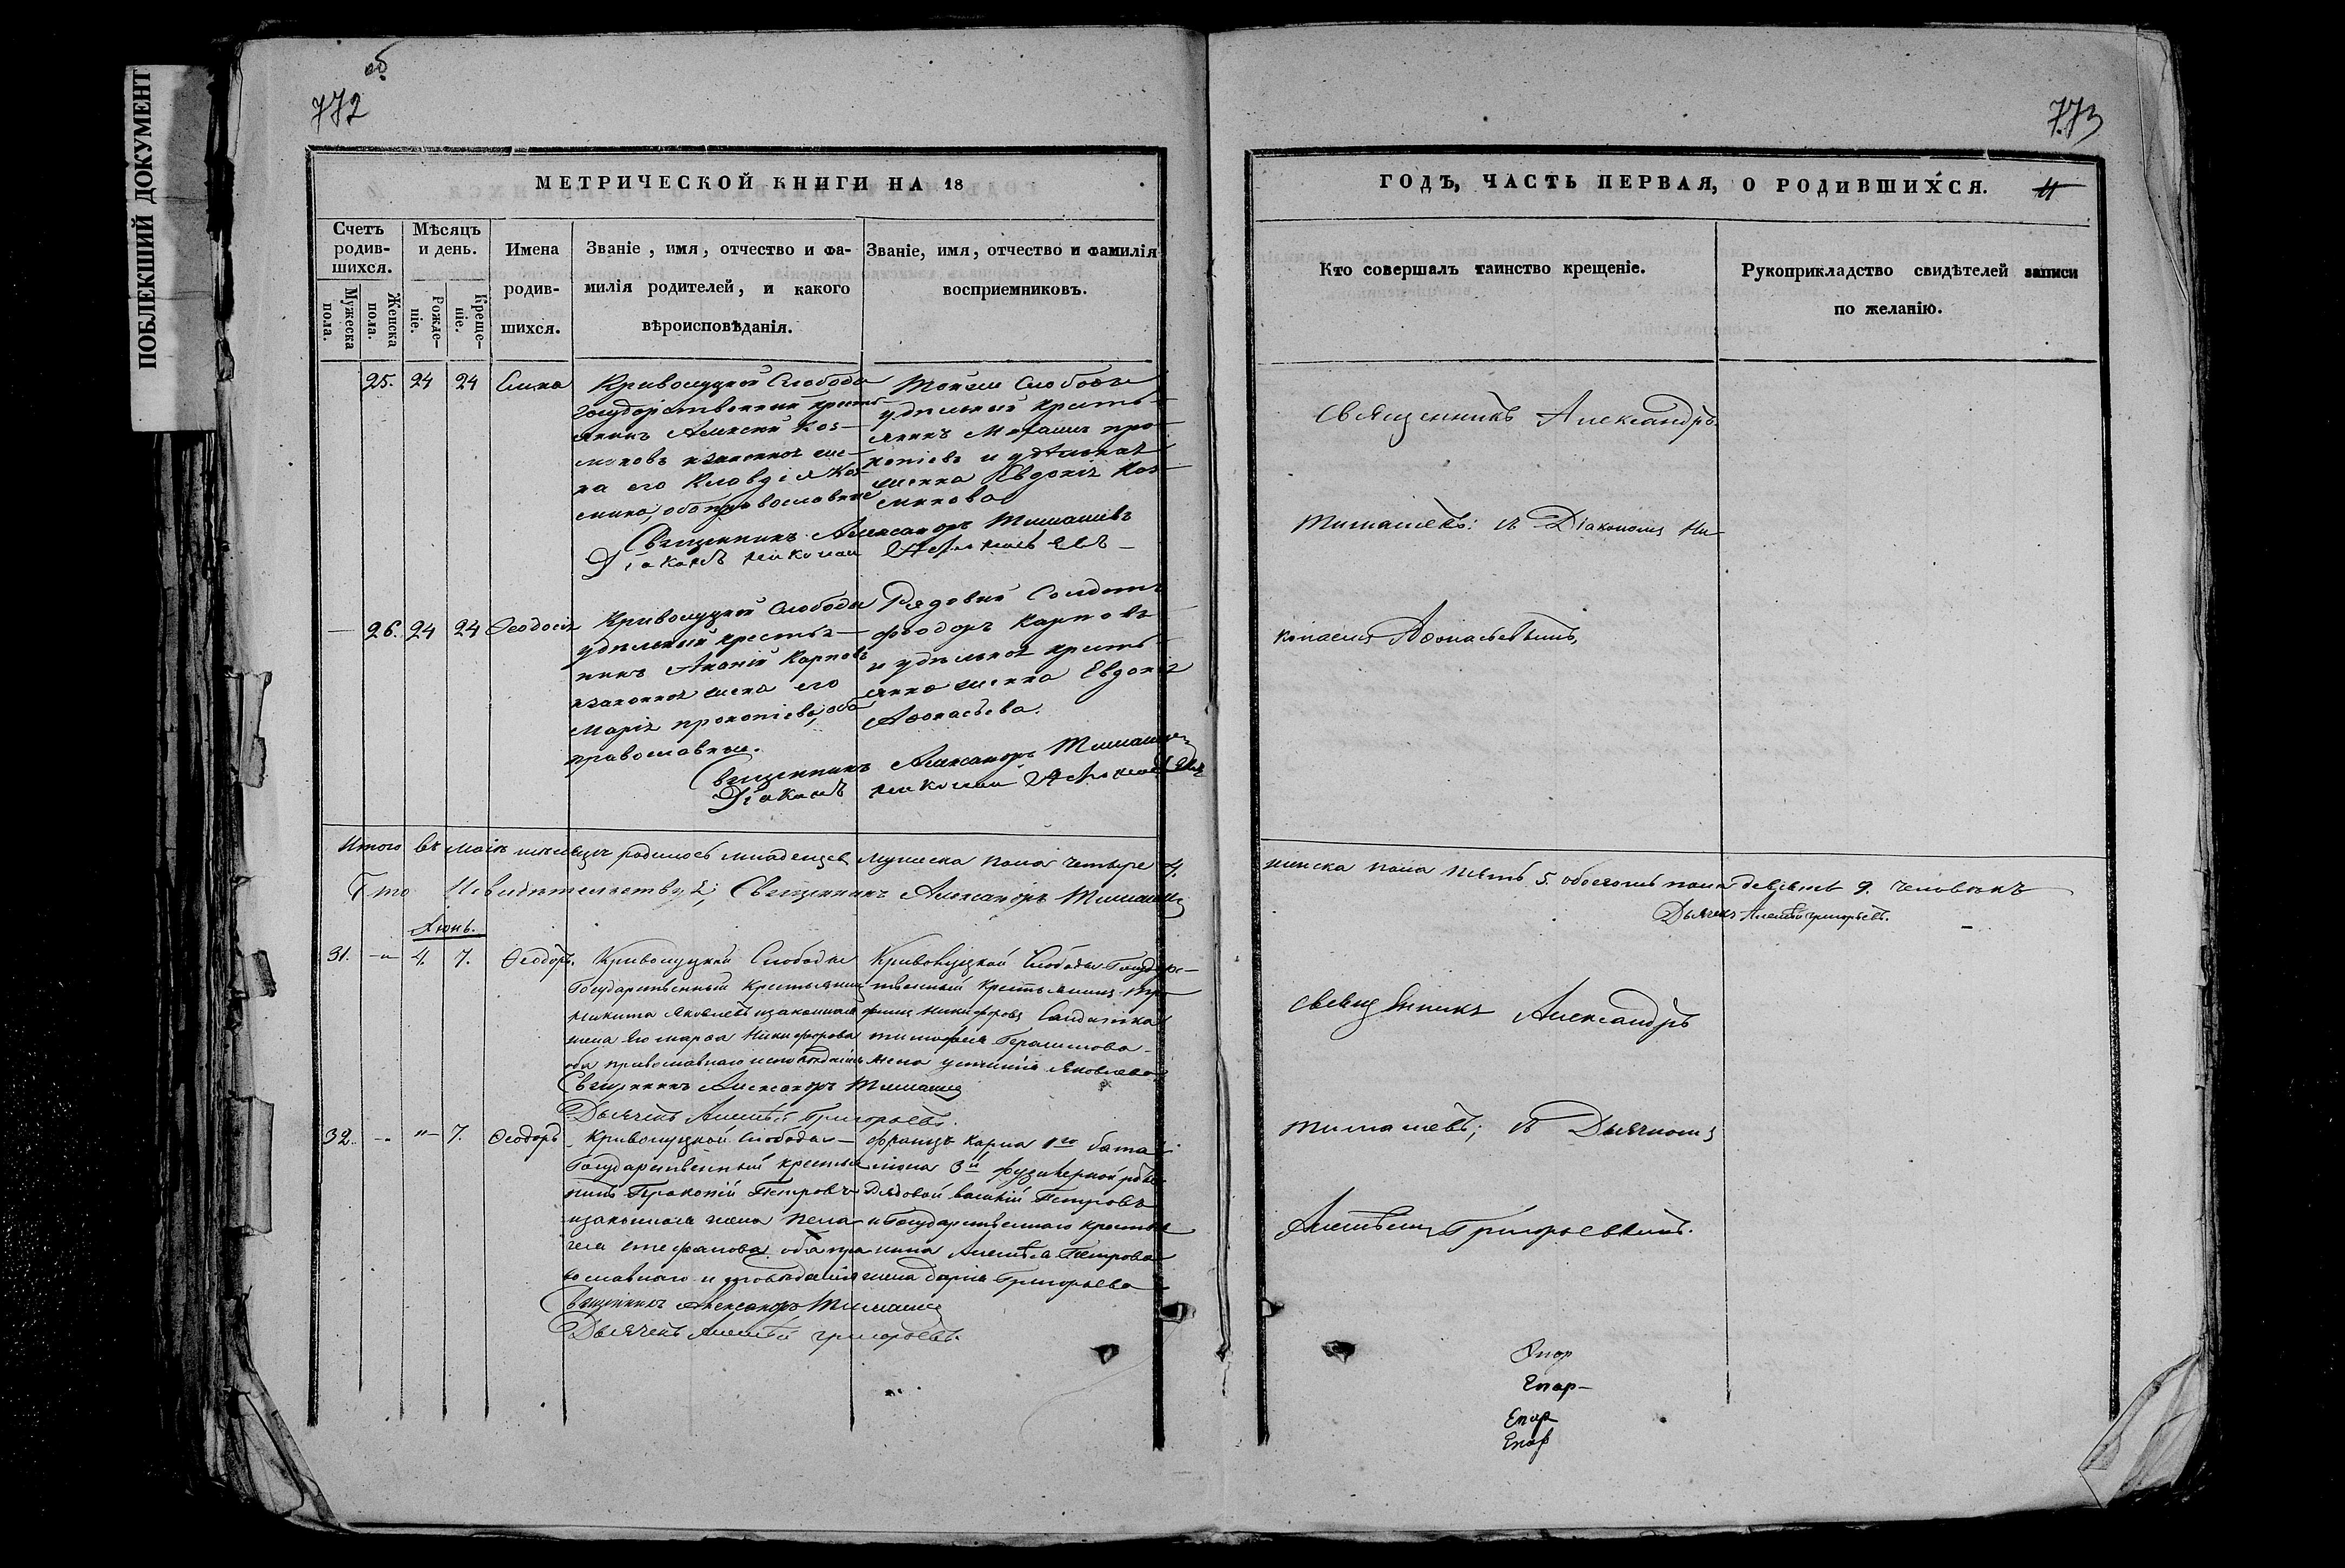 ПОБЛЕКШИЙ ДОКУМЕНТ
об
772
МЕТРИЧЕСКОЙ КНИГИ НА 18
Счетъ родившихся.
Мужеска пола.
Женска пола.
Мѣсяцъ и день.
Рожденіе.
Крещеніе.
Имена родившихся.
Званіе, имя, отчество и фамилія родителей, и какого вѣроисповѣданія.
Званіе, имя, отчество и фамилія восприемниковъ.
25. 24 24
Криволуцкой Слободы
Государственний кресть-
янинъ Алексей Коз-
миновъ изаконная же-
на его Клавдія Коз-
мина, оба православные
Тойже Слободы
удельний кресть-
янинъ Михаилъ про-
копіевъ и удѣльная
женка Евдокія Коз-
минова
Священникъ Александръ Тимашевъ
Діаконъ николай
— 26. 24 24 Феодосія
Криволуцкой Слободы
удѣльний крестья-
нинъ Ананій Карповъ
изаконная жена его
Марія прокопіева, оба
православные.
Рядовий Солдатъ
феодоръ Карповъ
и удѣльная кресть-
янка женка Евдокія
Афонасьева.
Священникъ Александръ Тимашев
Діаконъ николай
Итого въ маіѣ месяцѣ родилось младенцев мужеска пола четыре 4.
Священникъ Александръ Тимашев
Іюнь.
31. -"- 4. 7. Феодоръ.
Криволуцкой Слободы
Государственный Крестьянин
Никита Яковлевъ изаконная
жена Его марфа Никифорова
оба православнаго исповѣданія
Криволуцкой Слободы Государс-
твенный Крестьянинъ Тро-
фимъ Никифоровъ Салдатка
тимофея Герасимова
жена устинія Яковлева
Священникъ Александръ Тимашев
Дьячекъ Алексѣй Григорьевъ.
32. -"- "- 7. Феодоръ
Криволуцкой Слободы
Государственный крестья
нинъ Прокопій Петровъ
изаконная жена Пела
гея стефанова оба пра
вославнаго исповѣданія
карпа 1го бата
ліона 3й фузилерной роты
Рядовой василій Петровъ
и Государственнаго крестья
нина Алексѣя Петрова
жена дарья Григорьева
Священникъ Александръ Тимашев
Дьячекъ Алексѣй григорьевъ.
773
ГОДЪ, ЧАСТЬ ПЕРВАЯ, О РОДИВШИХСЯ.
Кто совершалъ таинство крещеніе.
Рукоприкладство свидѣтелей записи по желанію.
Священникъ Александръ
Тимашевъ: съ Діакономъ Ни-
колаемъ Афонасьевымъ,
женска пола пять 5. обоегополa девять 9. человѣкъ
Дьячекъ Алексѣй григорьевъ.
Священникъ Александръ
Тимашевъ; съ Дьячкомъ
Алексѣемъ Григорьевымъ.
Епар
Епар-
Епар
Епар